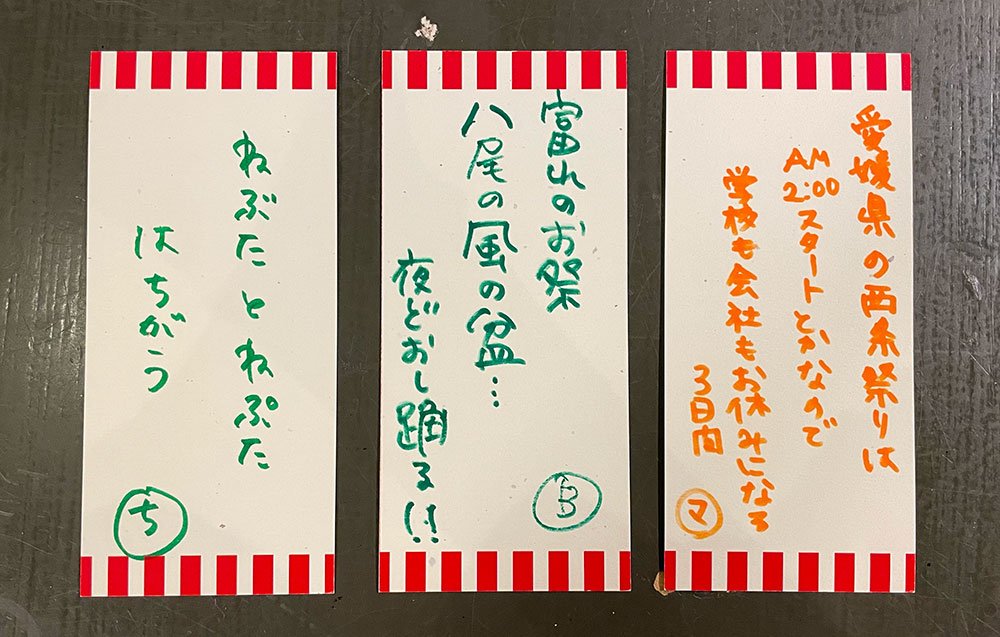 愛媛県の西条祭りは
AM
2:00スタートとかなので
学校も会社もお休みになる
3日間
マ
富山のお祭
八尾の風の盆…
夜どおし踊る!!
B
ねぶたとねぷた
はちがう
ち